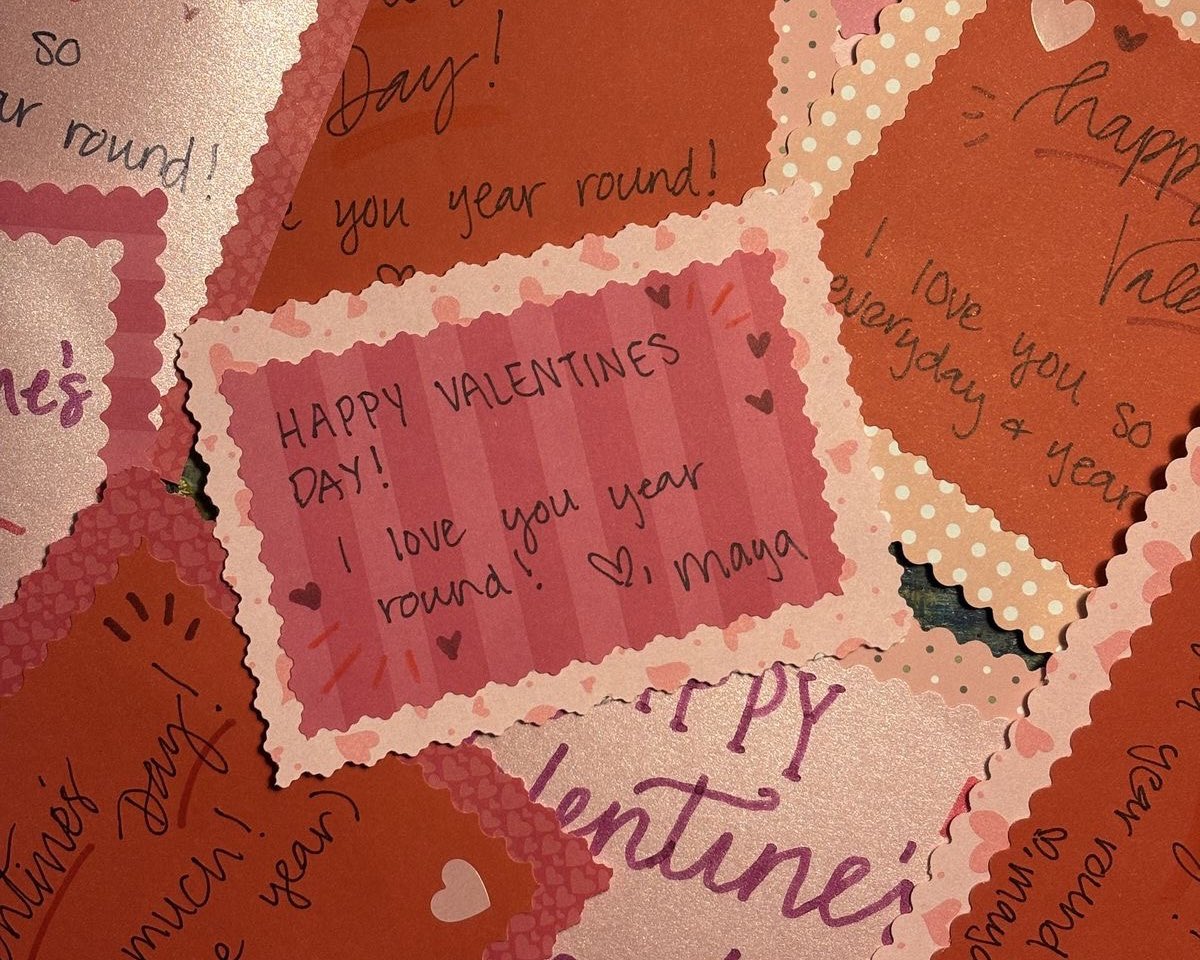 so
year round!
Day!
you year round!
happy
I love you so
everyday & year
ne's
HAPPY VALENTINES
DAY!
I love you year
round! ♡, maya
Day!
much!
year)
HAPPY
year round
♡, maya